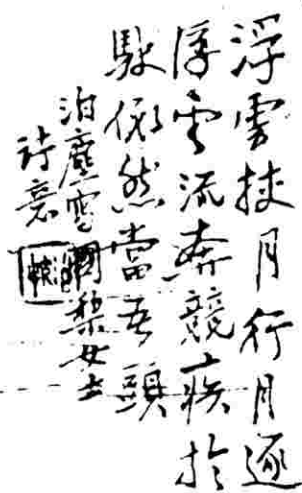 浮雲挾月行月逐
浮雲流奔競疾於
駛依然當吾頭
泊塵梨女士
詩意